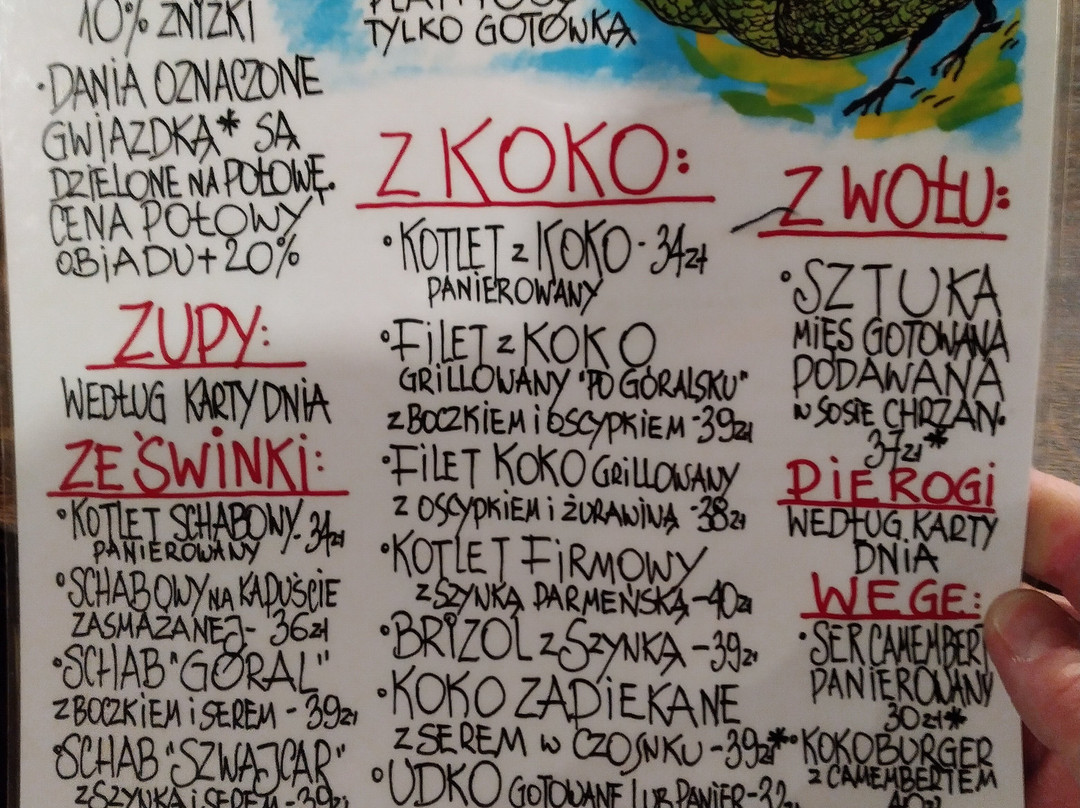 10% ZNIŻKI
•DANIA OZNACZONE
GWIAZDKĄ* SĄ
DZIELONE NA POŁOWĘ.
CENA POŁOWY
OBIADU + 20%
ZUPY:
WEDŁUG KARTY DNIA
ZE ŚWINKI:
•KOTLET SCHABOWY - 34zł
PANIEROWANY
•SCHABOWY NA KAPUŚCIE
ZASMAŻANEJ - 36zł
•SCHAB "GÓRAL"
z BOCZKIEM i SEREM - 39zł
•SCHAB "SZWAJCAR"
z SZYNKĄ i SEREM - 39zł
TYLKO GOTÓWKĄ
Z KOKO:
•KOTLET z KOKO - 34zł
PANIEROWANY
•FILET z KOKO
GRILLOWANY "PO GÓRALSKU"
z BOCZKIEM i OSCYPKIEM - 39zł
•FILET KOKO GRILLOWANY
Z OSCYPKIEM i ŻURAWINĄ - 38zł
•KOTLET FIRMOWY
z SZYNKĄ PARMEŃSKĄ - 40zł
•BRIZOL z SZYNKĄ - 39zł
•KOKO ZAPIEKANE
z SEREM w CZOSNKU - 39zł*
•UDKO GOTOWANE LUB PANIER - 32
Z WOŁU:
•SZTUKA
MIĘS GOTOWANA
PODAWANA
w SOSIE CHRZAN.
37zł*
PIEROGI
WEDŁUG KARTY
DNIA
WEGE:
•SER CAMEMBERT
PANIEROWANY
30zł*
•KOKOBURGER
z CAMEMBERTEM